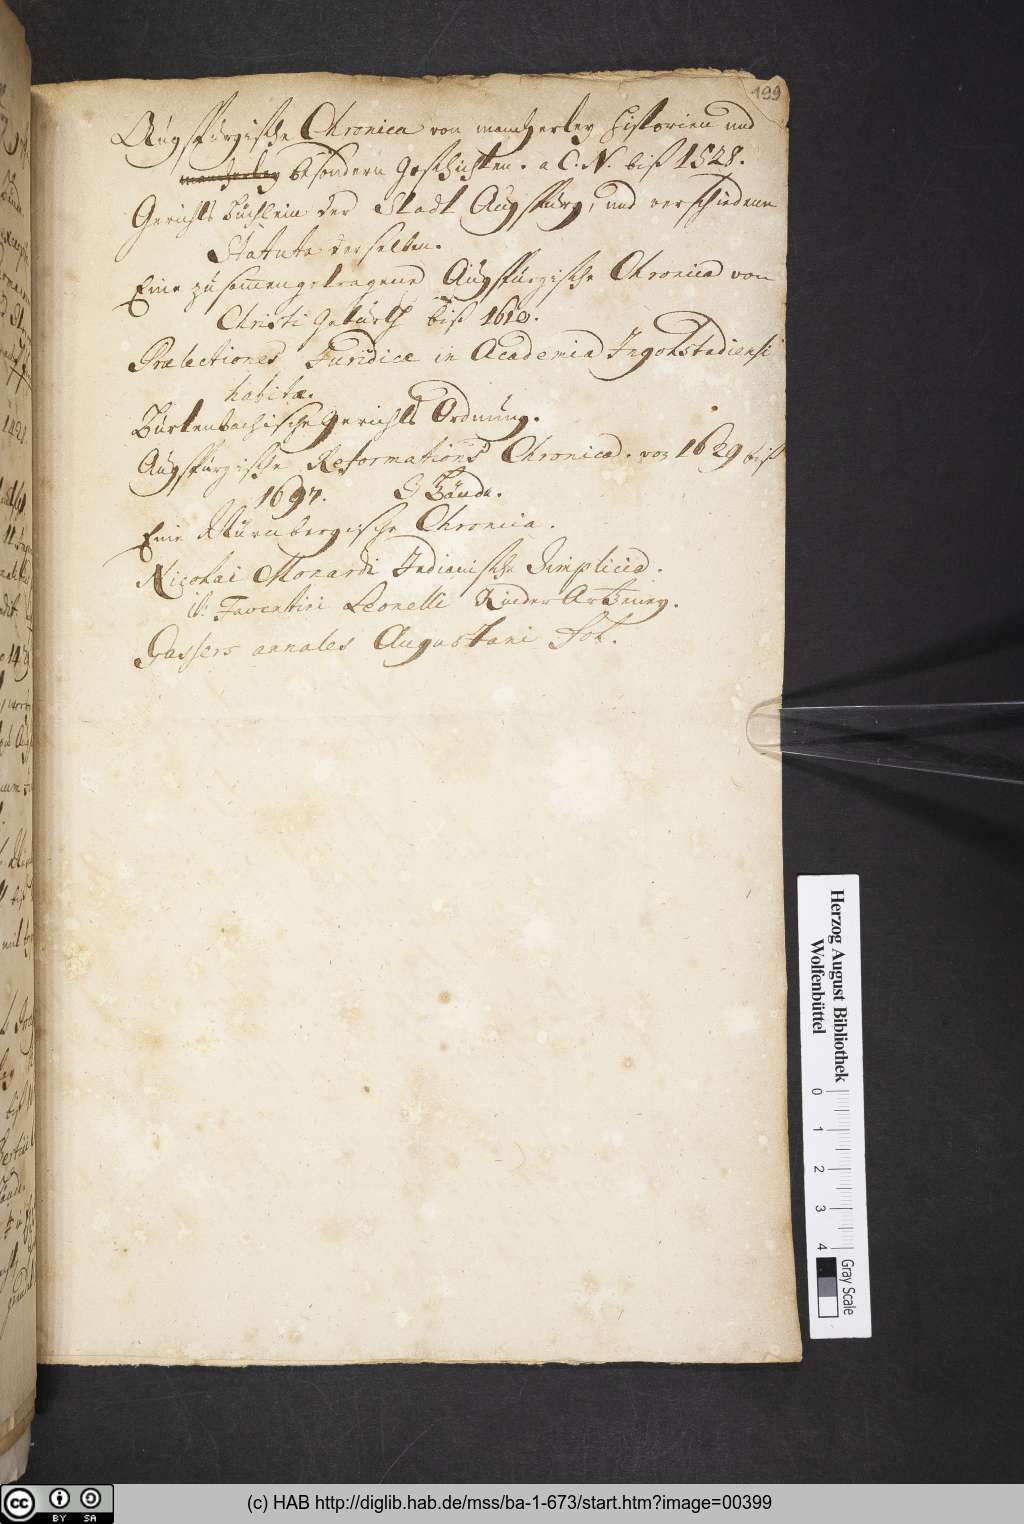 199
Augspurgische Chronica von mancherley Historien und
mancherley besondern Geschichten. a C. N. biß 1528.
Gerichts büchlein der Stadt Augspurg, und verschiedene
Statuta derselben.
Eine zusammengetragene Augspurgische Chronica von
Christi Geburth biß 1610.
Prælectiones Juridicæ in Academia Ingolstadiensi
habitæ.
Burtenbachische Gerichts Ordnung.
Augspurgische Reformations Chronica. von 1629 biß
1697. Bände.
Eine Nürnbergische Chronica.
Nicolai Monardi Indianische Simplicia.
Faventini Leonelli Kinder Artzeney.
Gassers annales Augustani fol.
Herzog August Bibliothek
Wolfenbüttel
0 1 2 3 4
Gray Scale
cc BY SA
(c) HAB http://diglib.hab.de/mss/ba-1-673/start.htm?image=00399